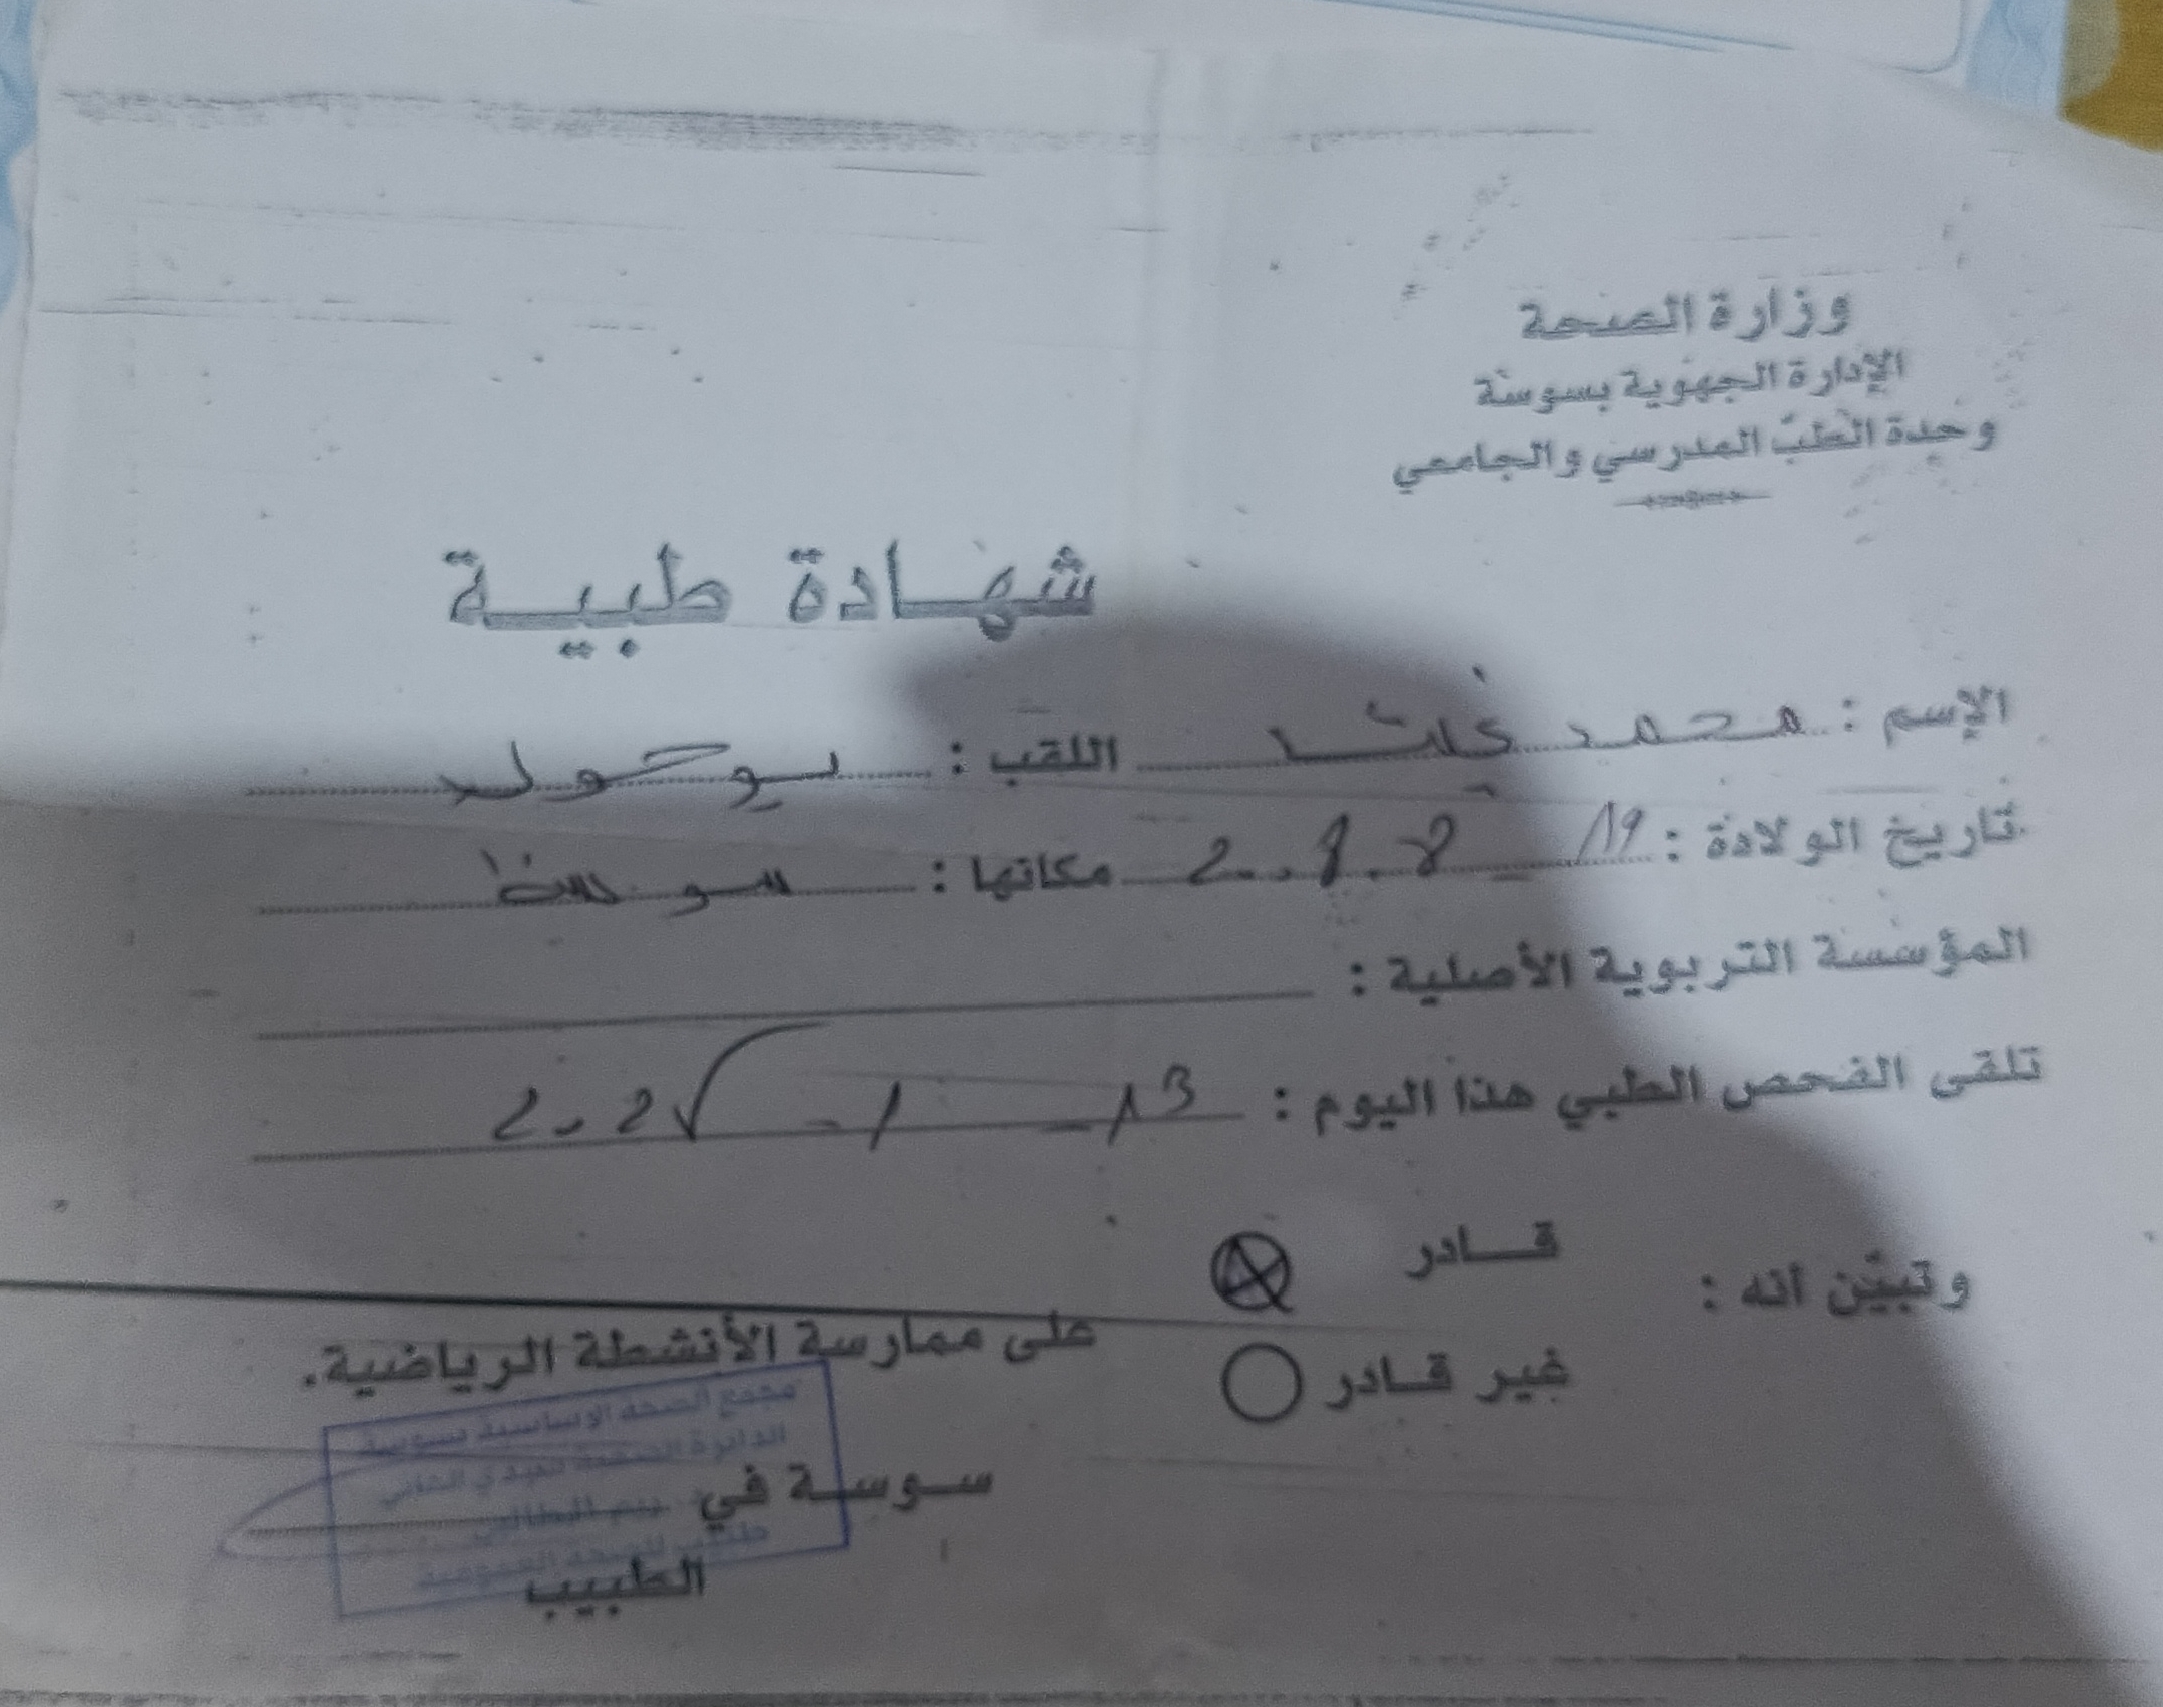 وزارة الصحة
الإدارة الجهوية بسوسة
وحدة الطب المدرسي والجامعي
شهادة طبية
الإسم : محمد غيث اللقب : بوحولة
تاريخ الولادة : 19 مكانها : سوسة
المؤسسة التربوية الأصلية :
تلقى الفحص الطبي هذا اليوم : 13 - 1 - 2025
وتبيّن أنه :
قادر
غير قادر
على ممارسة الأنشطة الرياضية.
مجمع الصحة الأساسية بسوسة
سوسة في
الطبيب